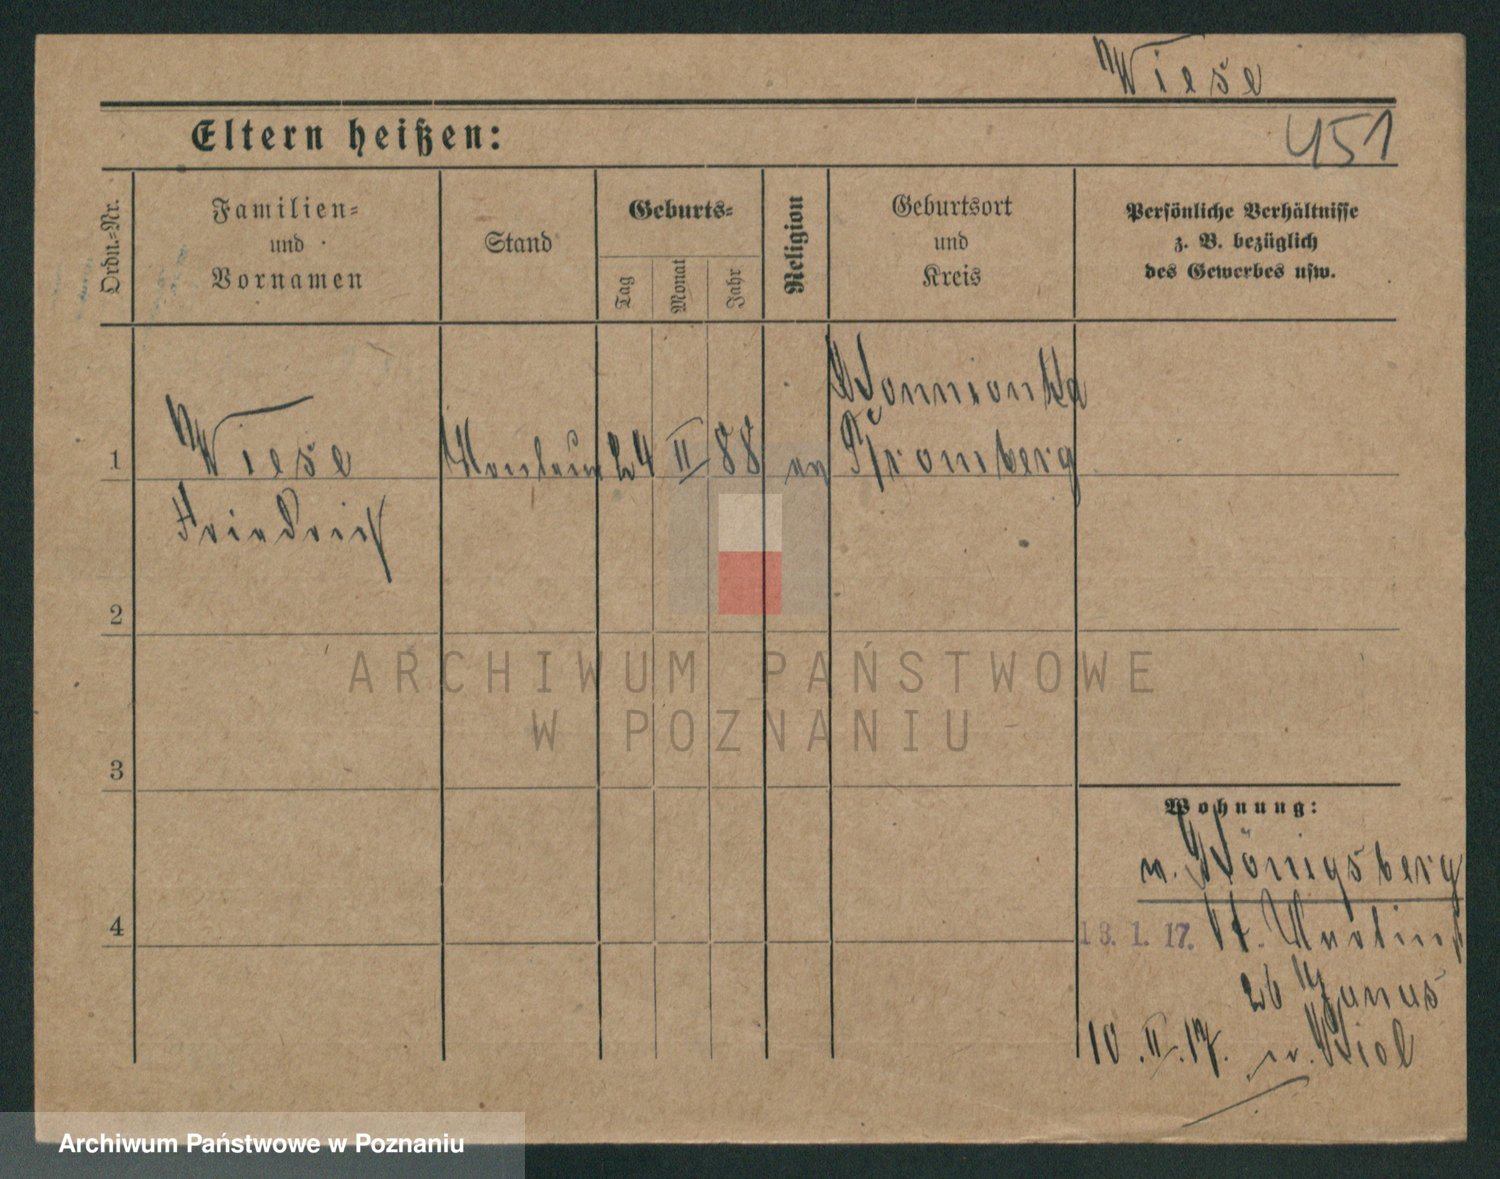 Wiese
451
Eltern heißen:
Ordn.-Nr.
Familien-
und
Vornamen
Stand
Geburts-
Tag
Monat
Jahr
Religion
Geburtsort
und
Kreis
Persönliche Verhältnisse
z. B. bezüglich
des Gewerbes usw.
1
Wiese
Friedrich
24 II 88 ev
Bromberg
2
3
4
Wohnung:
n. Königsberg
18. 1. 17. St. Martinst
26 Janus
10. II. 17. n. Kiel
ARCHIWUM PAŃSTWOWE
W POZNANIU
Archiwum Państwowe w Poznaniu